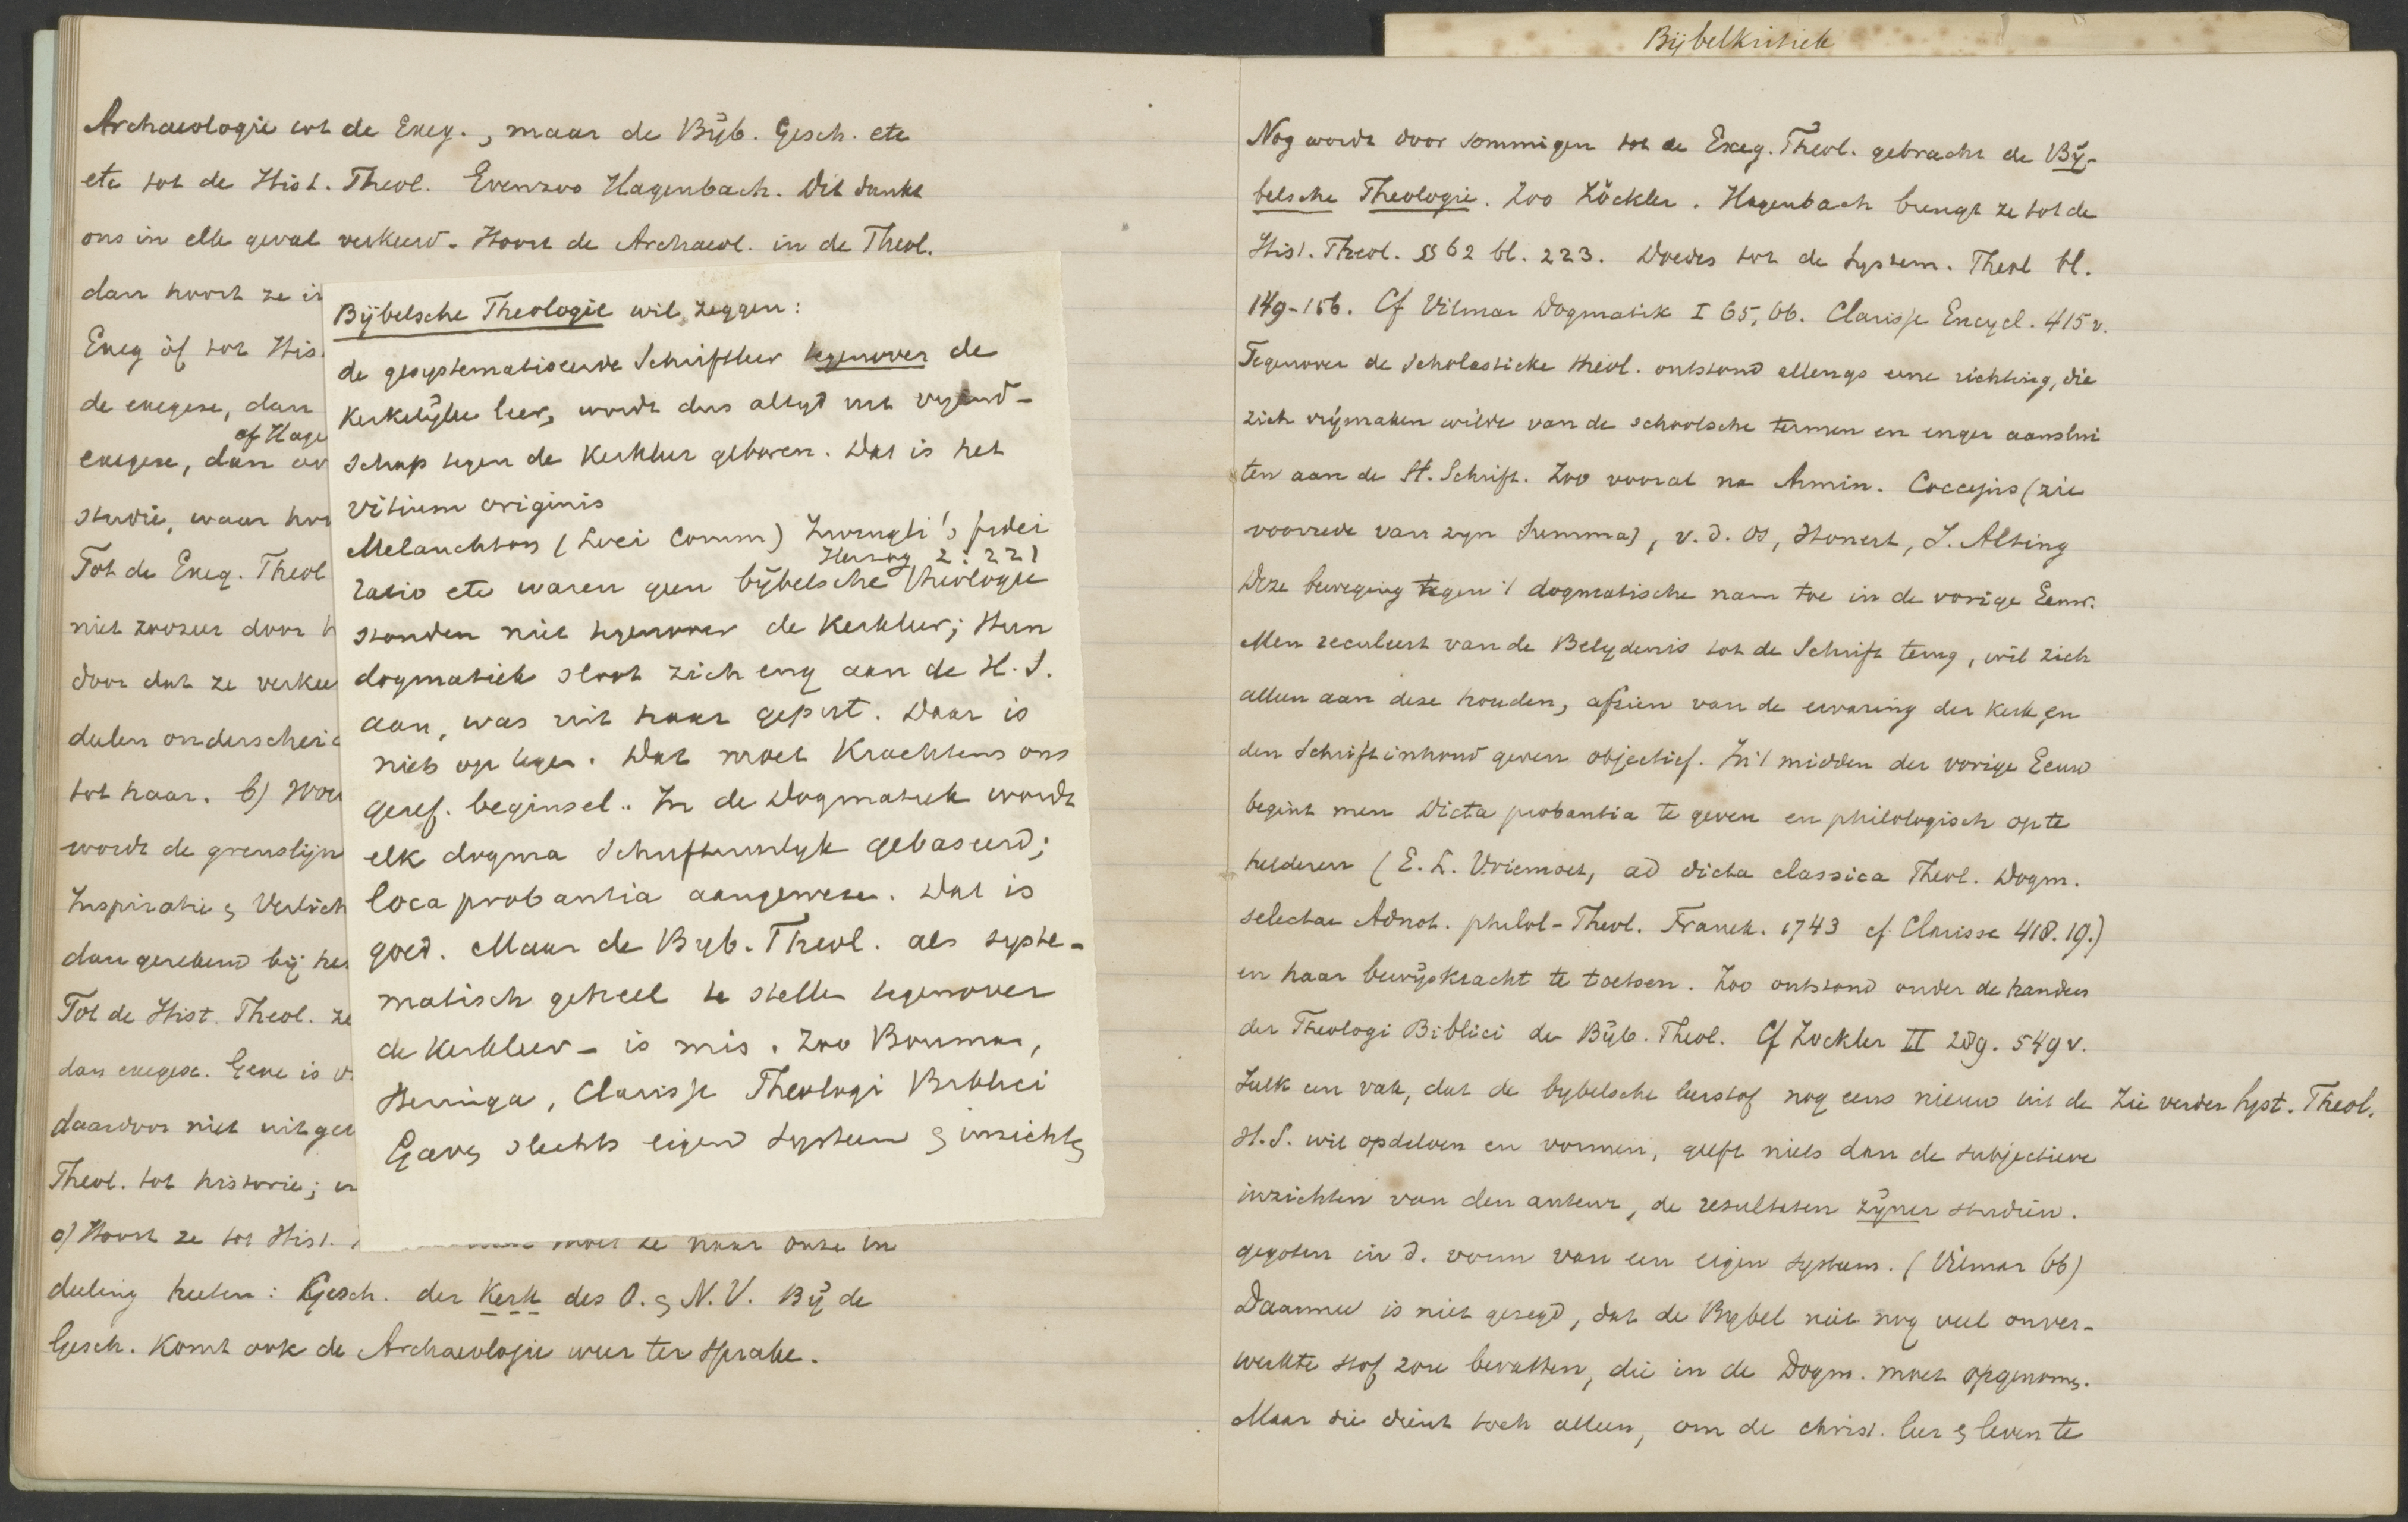 Archaeologie tot de Exeg., maar de Bijb. Gesch. etc
etc tot de Hist. Theol. Evenzoo Hagenbach. Dit dunkt
ons in elk geval verkeerd. Hoort de Archaeol. in de Theol.
dan hoort ze in
Exeg óf tot His
de exegese, dan
cf Hage
exegese, dan
studie, waar
Tot de Exeg. Theol
niet zoozeer door
door dat ze verkee
delen onderscheid
tot haar. b)
wordt de grenslijn
Inspiratie & Verlich
dan gerekend bij he
Tot de Hist. Theol. ze
dan exegese. Gene is
daardoor niet uitge
Theol. tot historie;
a) Hoort ze tot Hist. moet ze naar onze in
deeling heeten: Gesch. der Kerk des O. & N. V. Bij de
Gesch. komt ook de Archaeologie weer ter sprake.
Bijbelsche Theologie wil zeggen:
de gesystematiseerde Schriftleer tegenover de
Kerkelijke leer, wordt dus altyd uit vyand-
schap tegen de Kerkleer geboren. Dat is het
vitium originis
Melanchton (Loci Comm) Zwingli's fidei
Herzog 2: 221
ratio etc waren geen bijbelsche theologie
stonden niet tegenover de Kerkleer; Hun
dogmatiek sloot zich eng aan de H. S.
aan, was uit haar geput. Daar is
niets op tegen. Dat moet Krachtens ons
geref. beginsel. In de Dogmatiek wordt
elk dogma Schriftuurlyk gebaseerd;
loca probantia aangewezen. Dat is
goed. Maar de Byb. Theol. als syste-
matisch geheel te stellen tegenover
de Kerkleer - is mis. Zoo Bouman,
Heringa, Clarisse Theologi Biblici
Gaven slechts eigen systeem & inzichten
Bijbelkritiek
Nog wordt door sommigen tot de Exeg. Theol. gebracht de Bij-
belsche Theologie. Zoo Zöckler. Hagenbach brengt ze tot de
Hist. Theol. §§ 62 bl. 223. Doedes tot de System. Theol bl.
149-156. Cf Vilmar Dogmatik I 65, 66. Clarisse Encycl. 415 v.
Tegenover de Scholastieke theol. ontstond allengs eene richting, die
zich vrijmaken wilde van de schoolsche termen en enger aanslui
ten aan de H. Schrift. Zoo vooral na Armin. Coccejus (zie
voorrede van zyn Summa), v. d. Os, Honert, J. Alting
Deze beweging tegen 't dogmatische nam toe in de vorige Eeuw.
Men reculeert van de Belydenis tot de Schrift terug, wil zich
alleen aan deze houden, afzien van de ervaring der kerk, en
den Schriftinhoud geven objectief. In 't midden der vorige Eeuw
begint men Dicta probantia te geven en philologisch op te
helderen (E. L. Vriemoet, ad dicta classica Theol. Dogm.
selectae Adnot. philol-Theol. Franek. 1743 cf Clarisse 418.19.)
en haar bewijskracht te toetsen. Zoo ontstond onder de handen
der Theologi Biblici de Bijb. Theol. Cf Zockler II 289. 549 v.
Zulk een vak, dat de bybelsche leerstof nog eens nieuw uit de Zie verder Syst. Theol.
H. S. wil opdelven en vormen, geeft niets dan de subjectieve
inzichten van den auteur, de resultaten zyner studien.
gegoten in d. vorm van een eigen systeem. (Vilmar 66)
Daarmee is niet gezegd, dat de Bybel niet nog veel onver-
werkte stof zou bevatten, die in de Dogm. moet opgenomen.
Maar die dient toch alleen, om de christ. leer & leven te